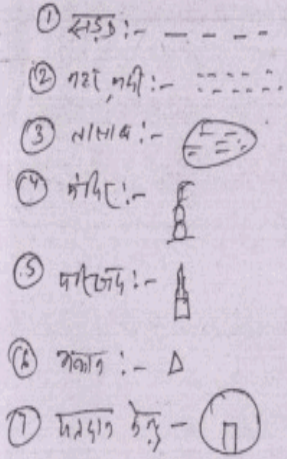 ① सड़क :-
② नहर, नदी :-
③ तालाब :-
④ मंदिर :-
⑤ मस्जिद :-
⑥ मकान :-
⑦ मतदान केन्द्र -